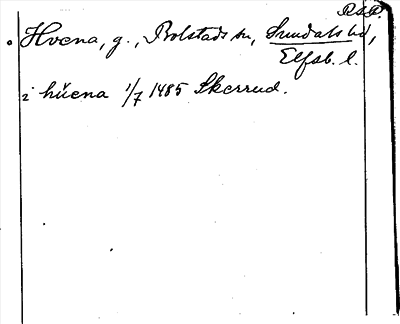 R.A.P.
Hvena, g., Bolstads sn, Sundals hd,
Elfsb. l.
i hüena 1/7 1485 Skerrud.